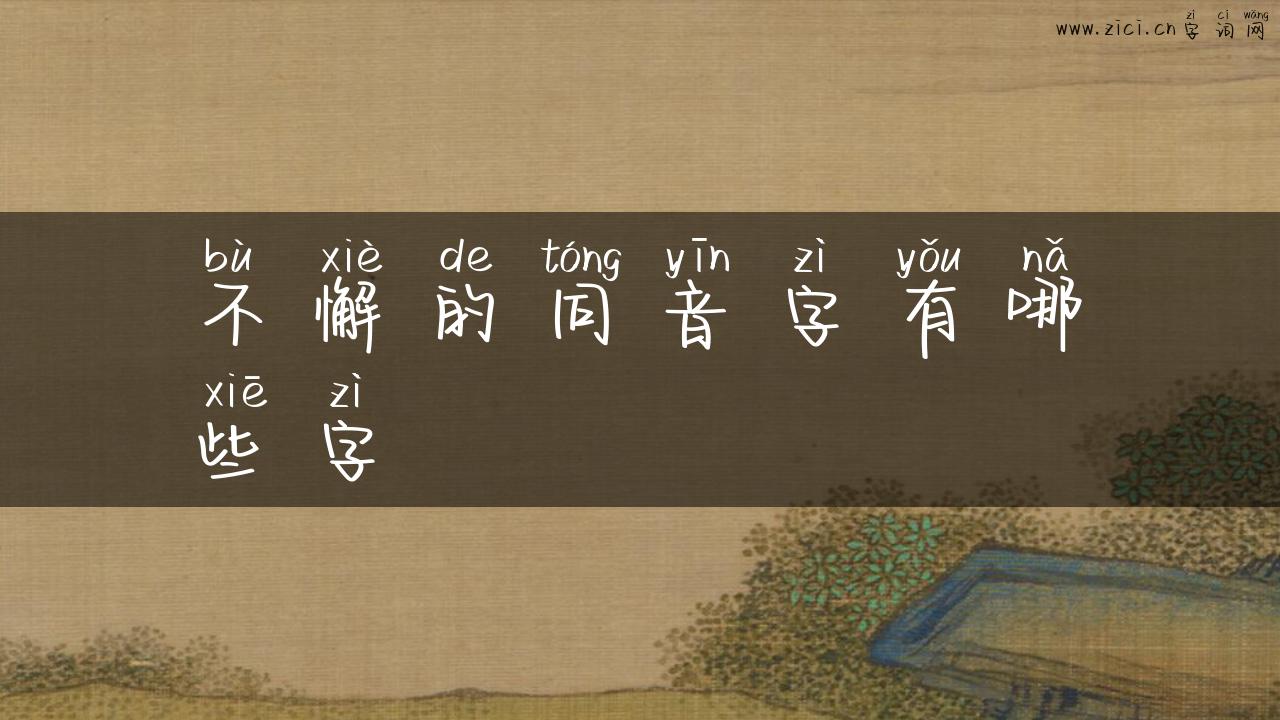 zì cí wǎng
www.zici.cn 字 词 网
bù xiè de tóng yīn zì yǒu nǎ
不 懈 的 同 音 字 有 哪
xiē zì
些 字